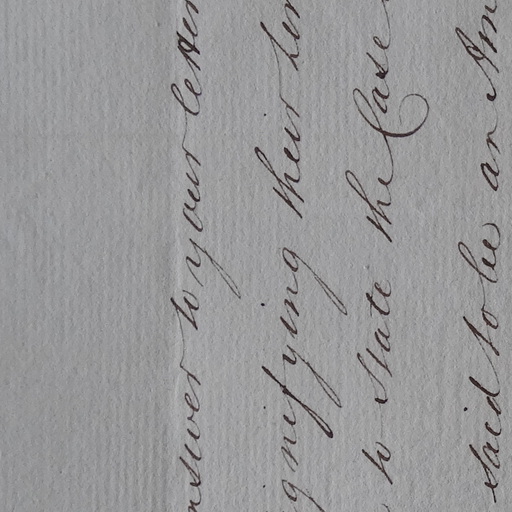 nswer to your letter
gnifying their
to state the Case
said to be an Am